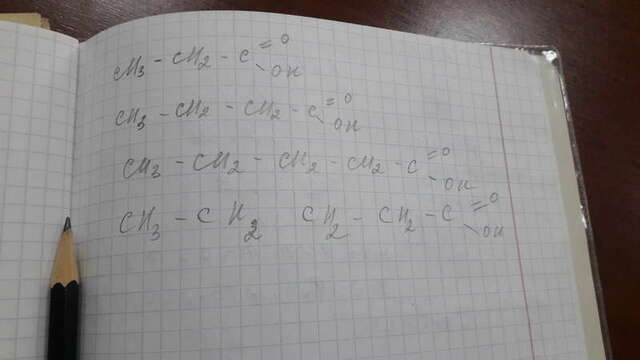 CH3 - CH2 - C =O -OH
CH3 - CH2 - CH2 - C =O -OH
CH3 - CH2 - CH2 - CH2 - C =O -OH
CH3 - CH2 CH2 - CH2 - C =O -OH